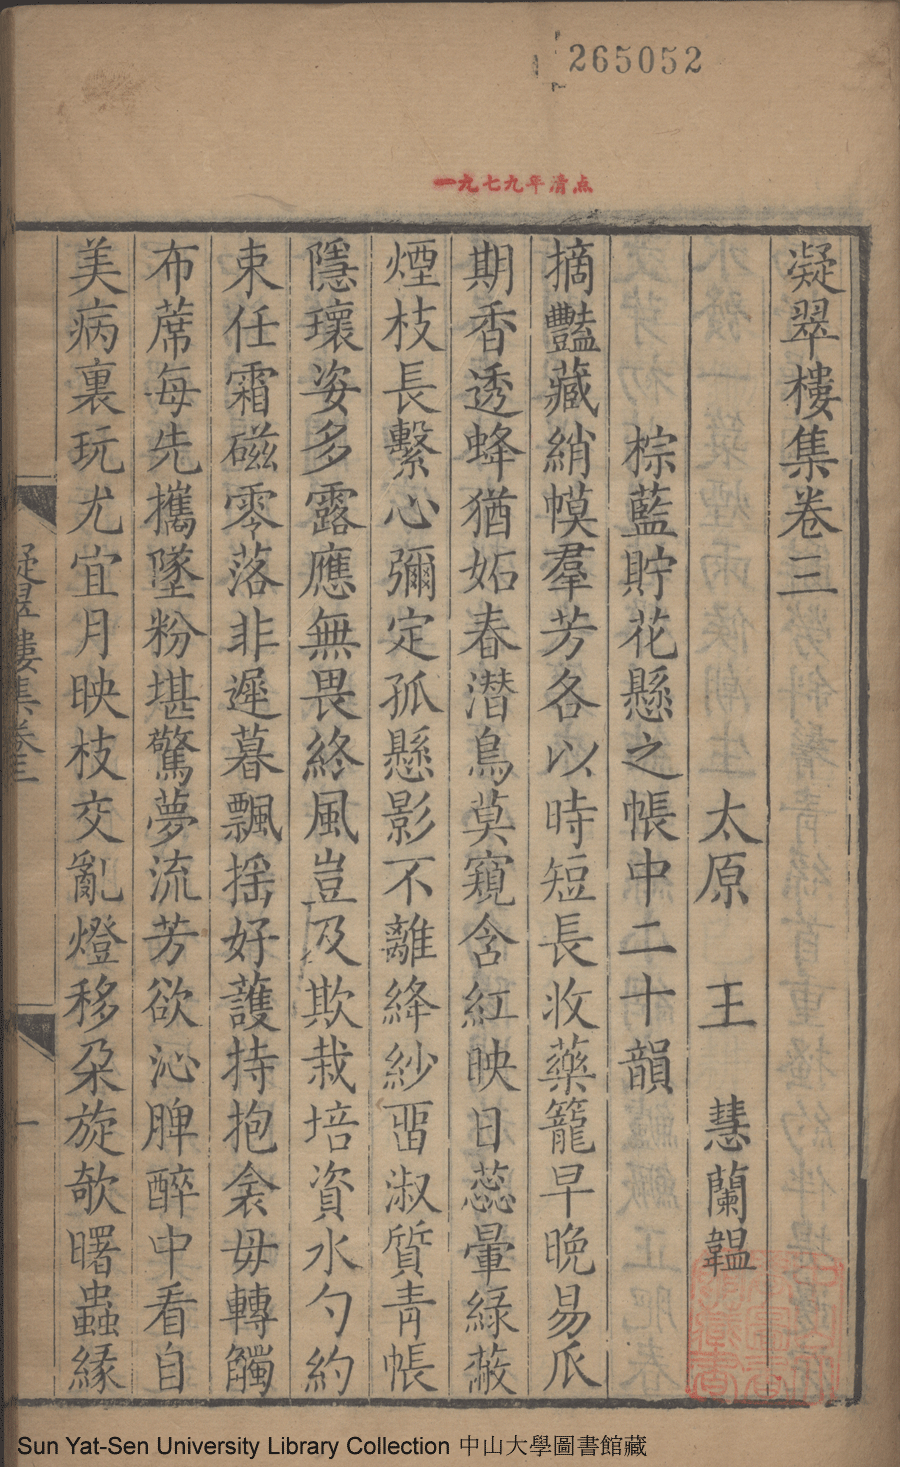 265052
一九七九年清点
凝翠樓集卷三
太原 王 慧蘭韞
棕藍貯花懸之帳中二十韻
摘豔藏綃幙羣芳各以時短長收藥籠早晚易爪
期香透蜂猶妬春潜鳥莫窺含紅映日蕊暈綠蔽
煙枝長繫心彌定孤懸影不離絳紗畱淑質青帳
隱瓌姿多露應無畏終風豈及欺栽培資水勺約
束任霜磁零落非遲暮飄揺好護持抱衾毋轉觸
布蓆每先攜墜粉堪驚夢流芳欲沁脾醉中看自
美病裏玩尤宜月映枝交亂燈移朶旋欹曙蟲緣
凝翠樓集卷三
一
Sun Yat-Sen University Library Collection 中山大學圖書館藏